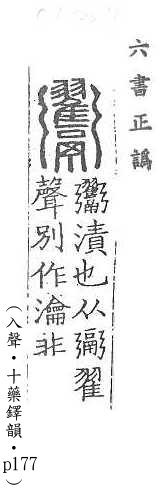 六書正譌
漬也从䰜翟
聲別作瀹非
（入聲・十藥鐸韻・p177）